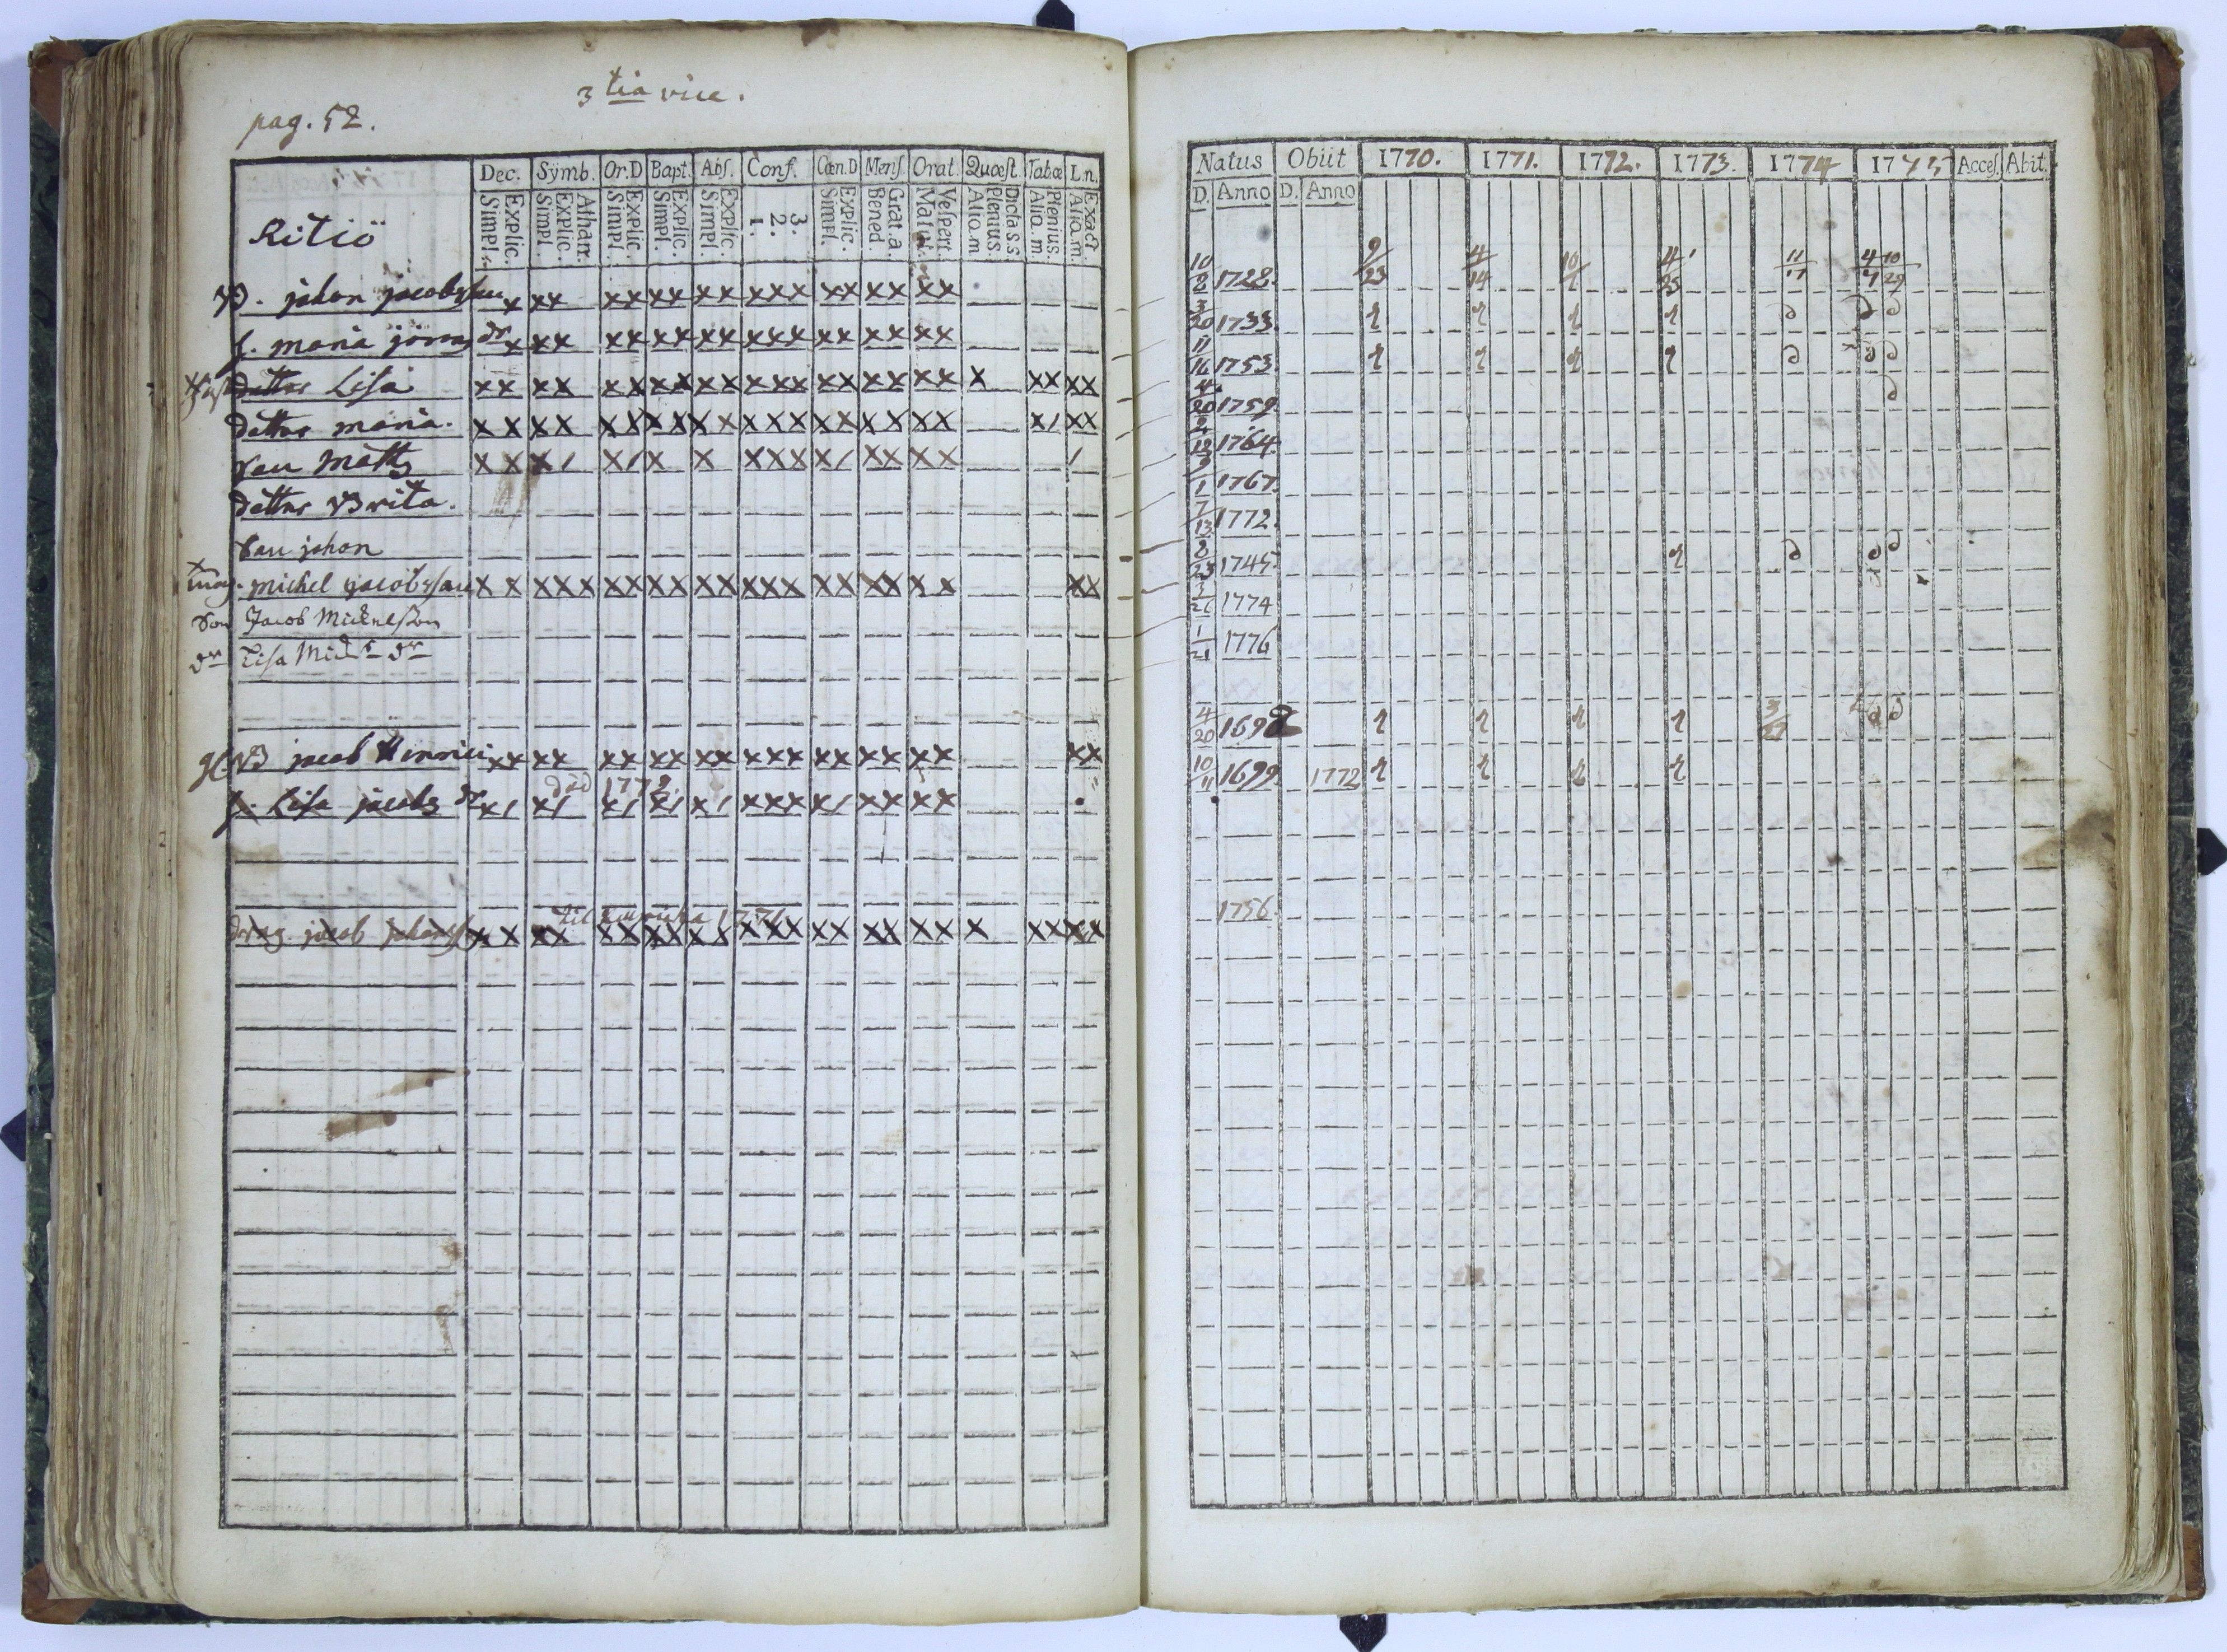 3 tia vice.
pag. 52.
Ritiö
Dec. Symb. Or.D Bapt. Abs. Conf. Cœn.D Mens. Orat. Quœst. Tabœ L.n.
Simpl. Explic. Simpl. Explic. Athan. Simpl. Explic. Simpl. Explic. Simpl. Explic. 1. 2. 3. Simpl. Explic. Bened. Grat.a. Matut. Vespert. Aliq.m Plenius. Dictass. Aliq.m Plenius. Aliq.m. Exact
johan jacobsson x xx xx xx xx xxx xx xx xx
h. maria jörans dr x xx xx xx xx xxx xx xx xx
dotter Lisa xx xx xx xx xx xxx xx xx xx x xx xx
dotter maria. xx xx xx xx xx xxx xx xx xx x/ xx
son Matts xx x/ x/ x x xxx x/ xx xx /
dotter Brita.
Son johan
mag. michel jacobsson xx xxx xx xx xx xxx xx xx xx xx
Son Jacob Michelsson
dr Lisa Mich dr
jacob Hinrici xx xx xx xx xx xxx xx xx xx xx
död 1772
h. Lisa jacobs dr x/ x/ x/ x/ x/ xxx x/ xx xx
til
dreng jacob johans xx xx xx xx xx xxx xx xx xx x xx xx
Natus Obiit 1770. 1771. 1772. 1773. 1774 1775 Acces. Abit.
D. Anno D. Anno
10/8 1728. 9/23 4/14 10/1 4/25 11/17 4/7 10/29
3/20 1733.
11/16 1753
4/20 1759.
1764.
9/1 1767.
7/13 1772.
8/23 1745.
3/26 1774
1/21 1776
4/20 1698
10/11 1699. 1772
1756.